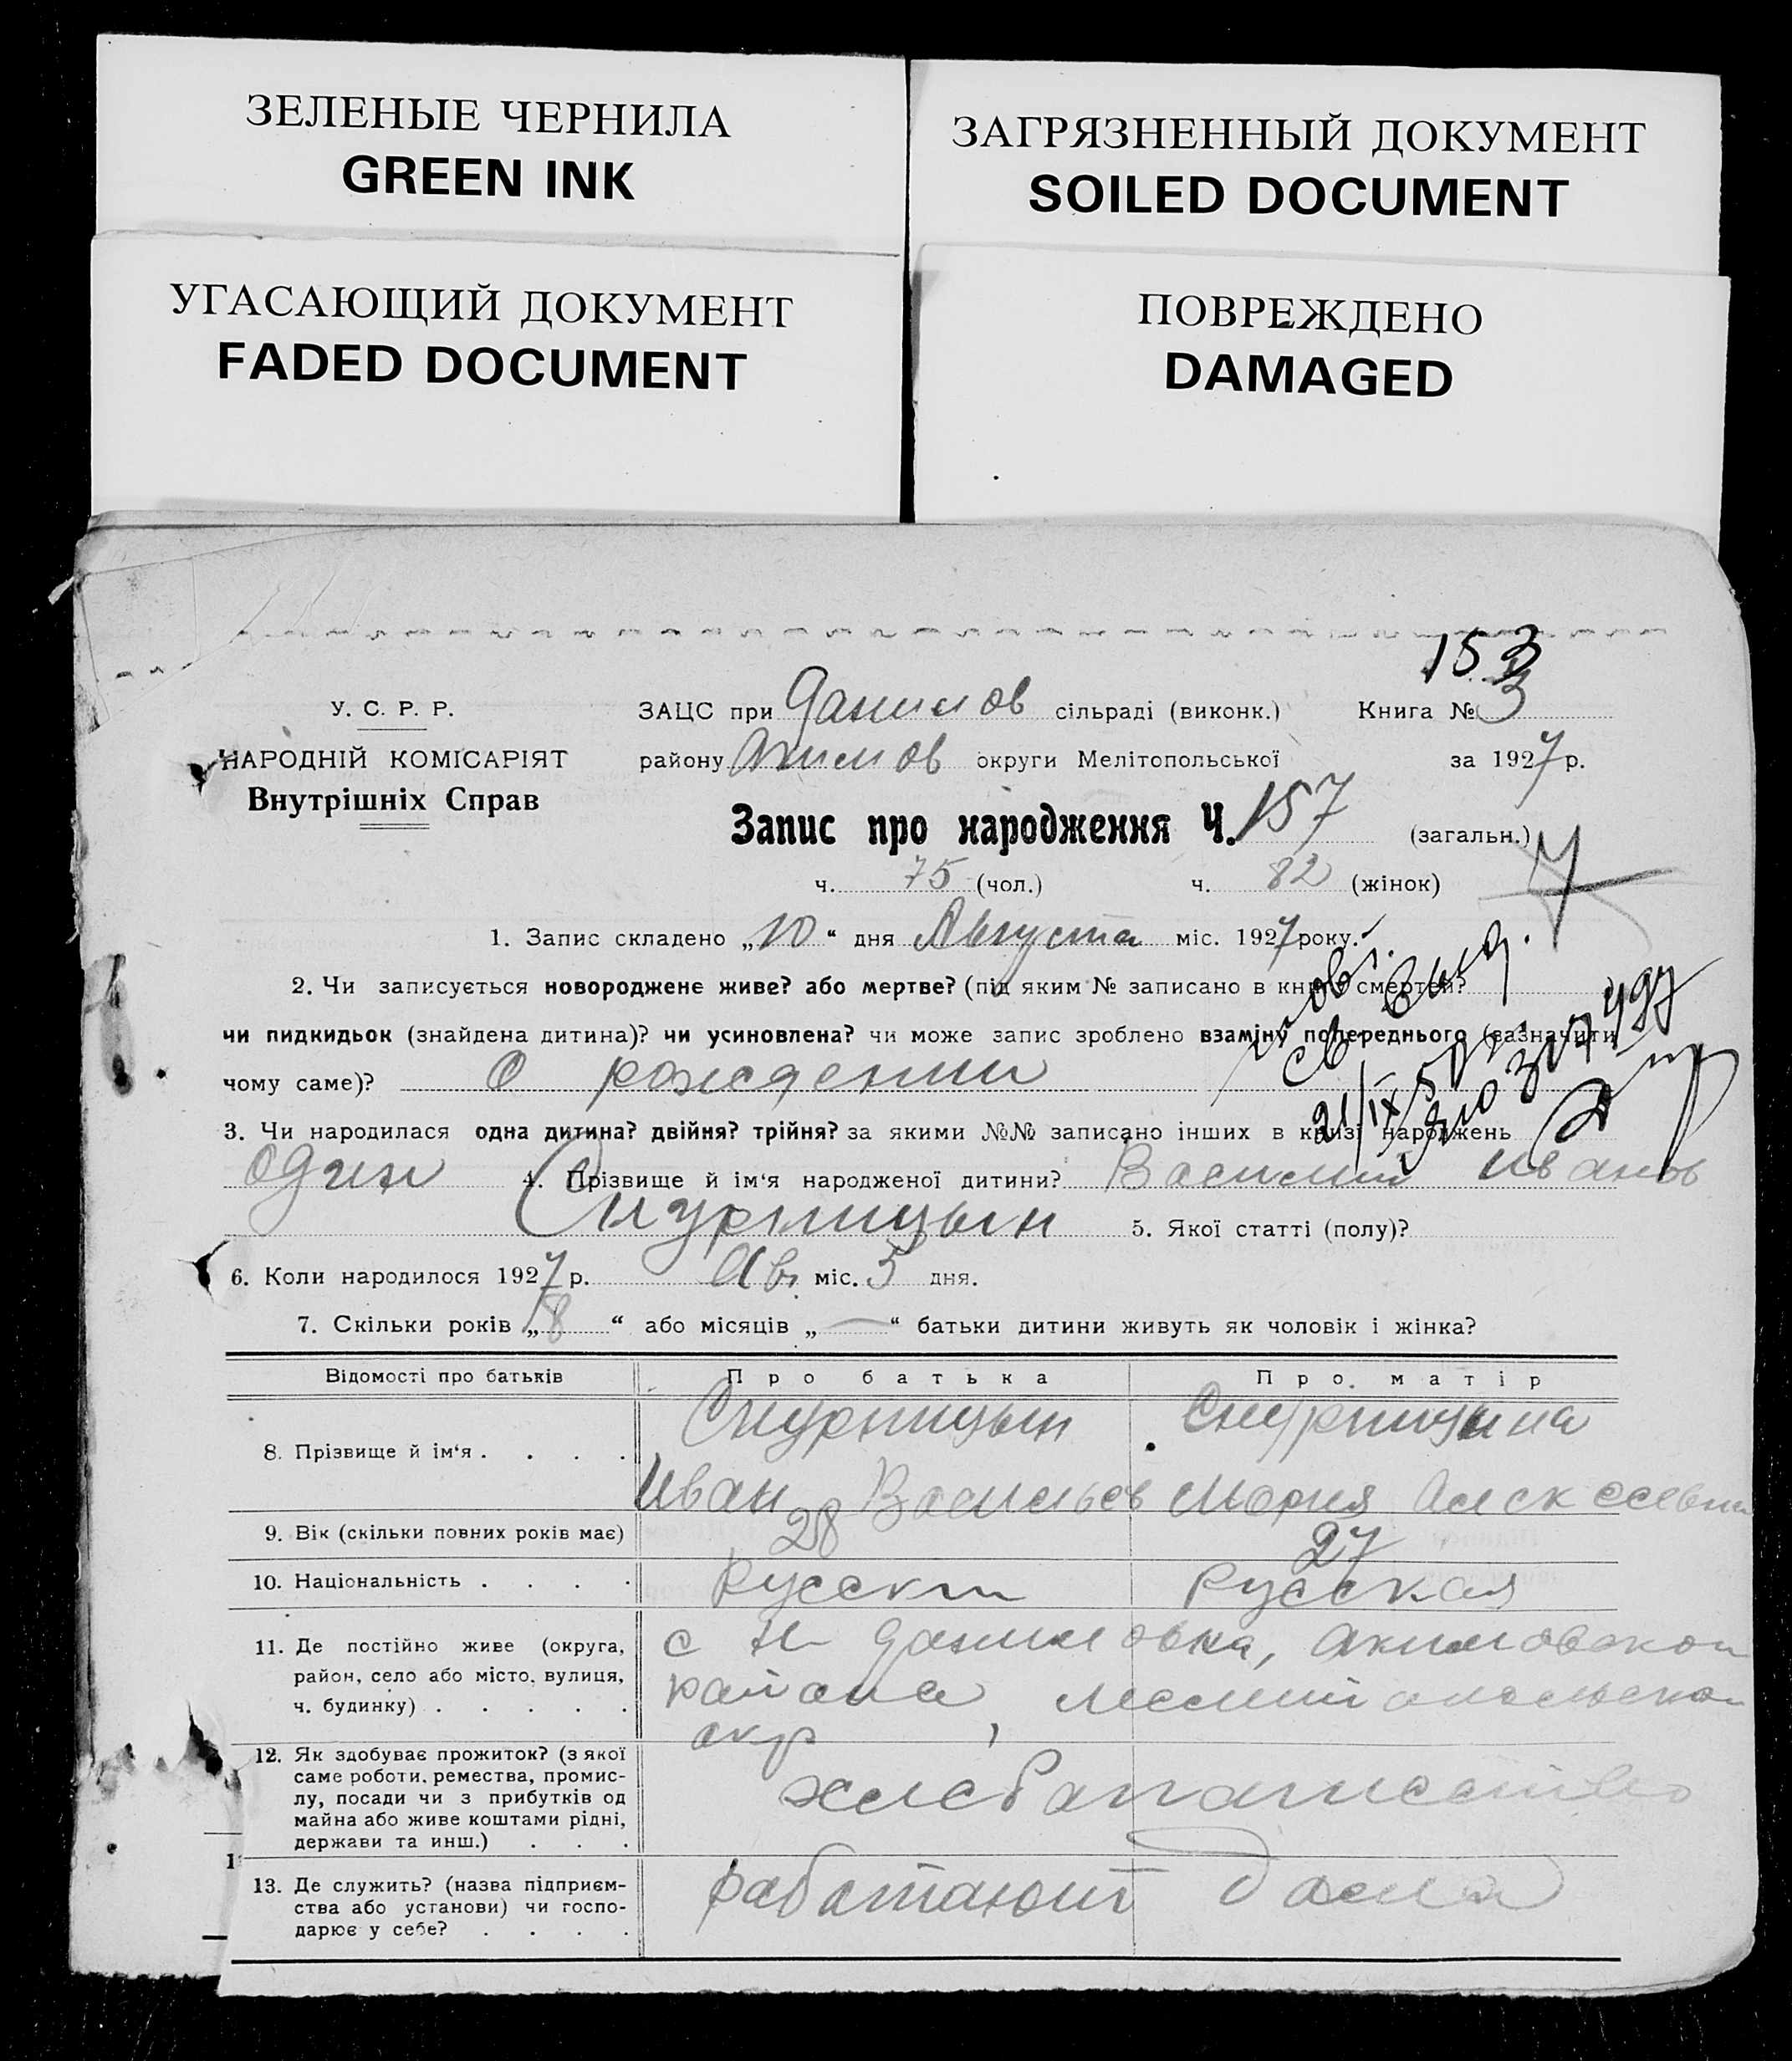 ЗЕЛЕНЫЕ ЧЕРНИЛА
GREEN INK
ЗАГРЯЗНЕННЫЙ ДОКУМЕНТ
SOILED DOCUMENT
УГАСАЮЩИЙ ДОКУМЕНТ
FADED DOCUMENT
ПОВРЕЖДЕНО
DAMAGED
153
У. С. Р. Р.
ЗАЦС при Данилов сільраді (виконк.) Книга № 3
НАРОДНІЙ КОМІСАРІЯТ
району Акимов округи Мелітопольської за 1927 р.
Внутрішніх Справ
Запис про народження Ч. 157 (загальн.)
ч. 75 (чол.) ч. 82 (жінок)
1. Запис складено „10“ дня Августа міс. 1927 року.
2. Чи записується новороджене живе? або мертве? (під яким № записано в книзі смертей?
чи пидкидьок (знайдена дитина)? чи усиновлена? чи може запис зроблено взаміну попереднього (зазначити
чому саме)? О рождении
3. Чи народилася одна дитина? двійня? трійня? за якими №№ записано інших в книзі народжень
один 4. Прізвище й ім‘я народженої дитини? Василий Иванов
5. Якої статті (полу)?
6. Коли народилося 1927 р. Ав. міс. 5 дня.
7. Скільки років „8“ або місяців „—“ батьки дитини живуть як чоловік і жінка?
Відомості про батьків Про батька Про матір
8. Прізвище й ім‘я . . . .
Иван Васильев Мария Алексеевна
9. Вік (скільки повних років має) 28 27
10. Національність . . . . Русски Русская
11. Де постійно живе (округа, с Н Даниловка, Акимовской
район, село або місто, вулиця, района, Мелитопольской
ч. будинку) . . . . . окр
12. Як здобуває прожиток? (з якої
саме роботи, ремества, промис-
лу, посади чи з прибутків од
майна або живе коштами рідні,
держави та инш.) . . .
хлебопашество
13. Де служить? (назва підприєм-
ства або установи) чи госпо-
дарює у себе? . . . .
работают дома